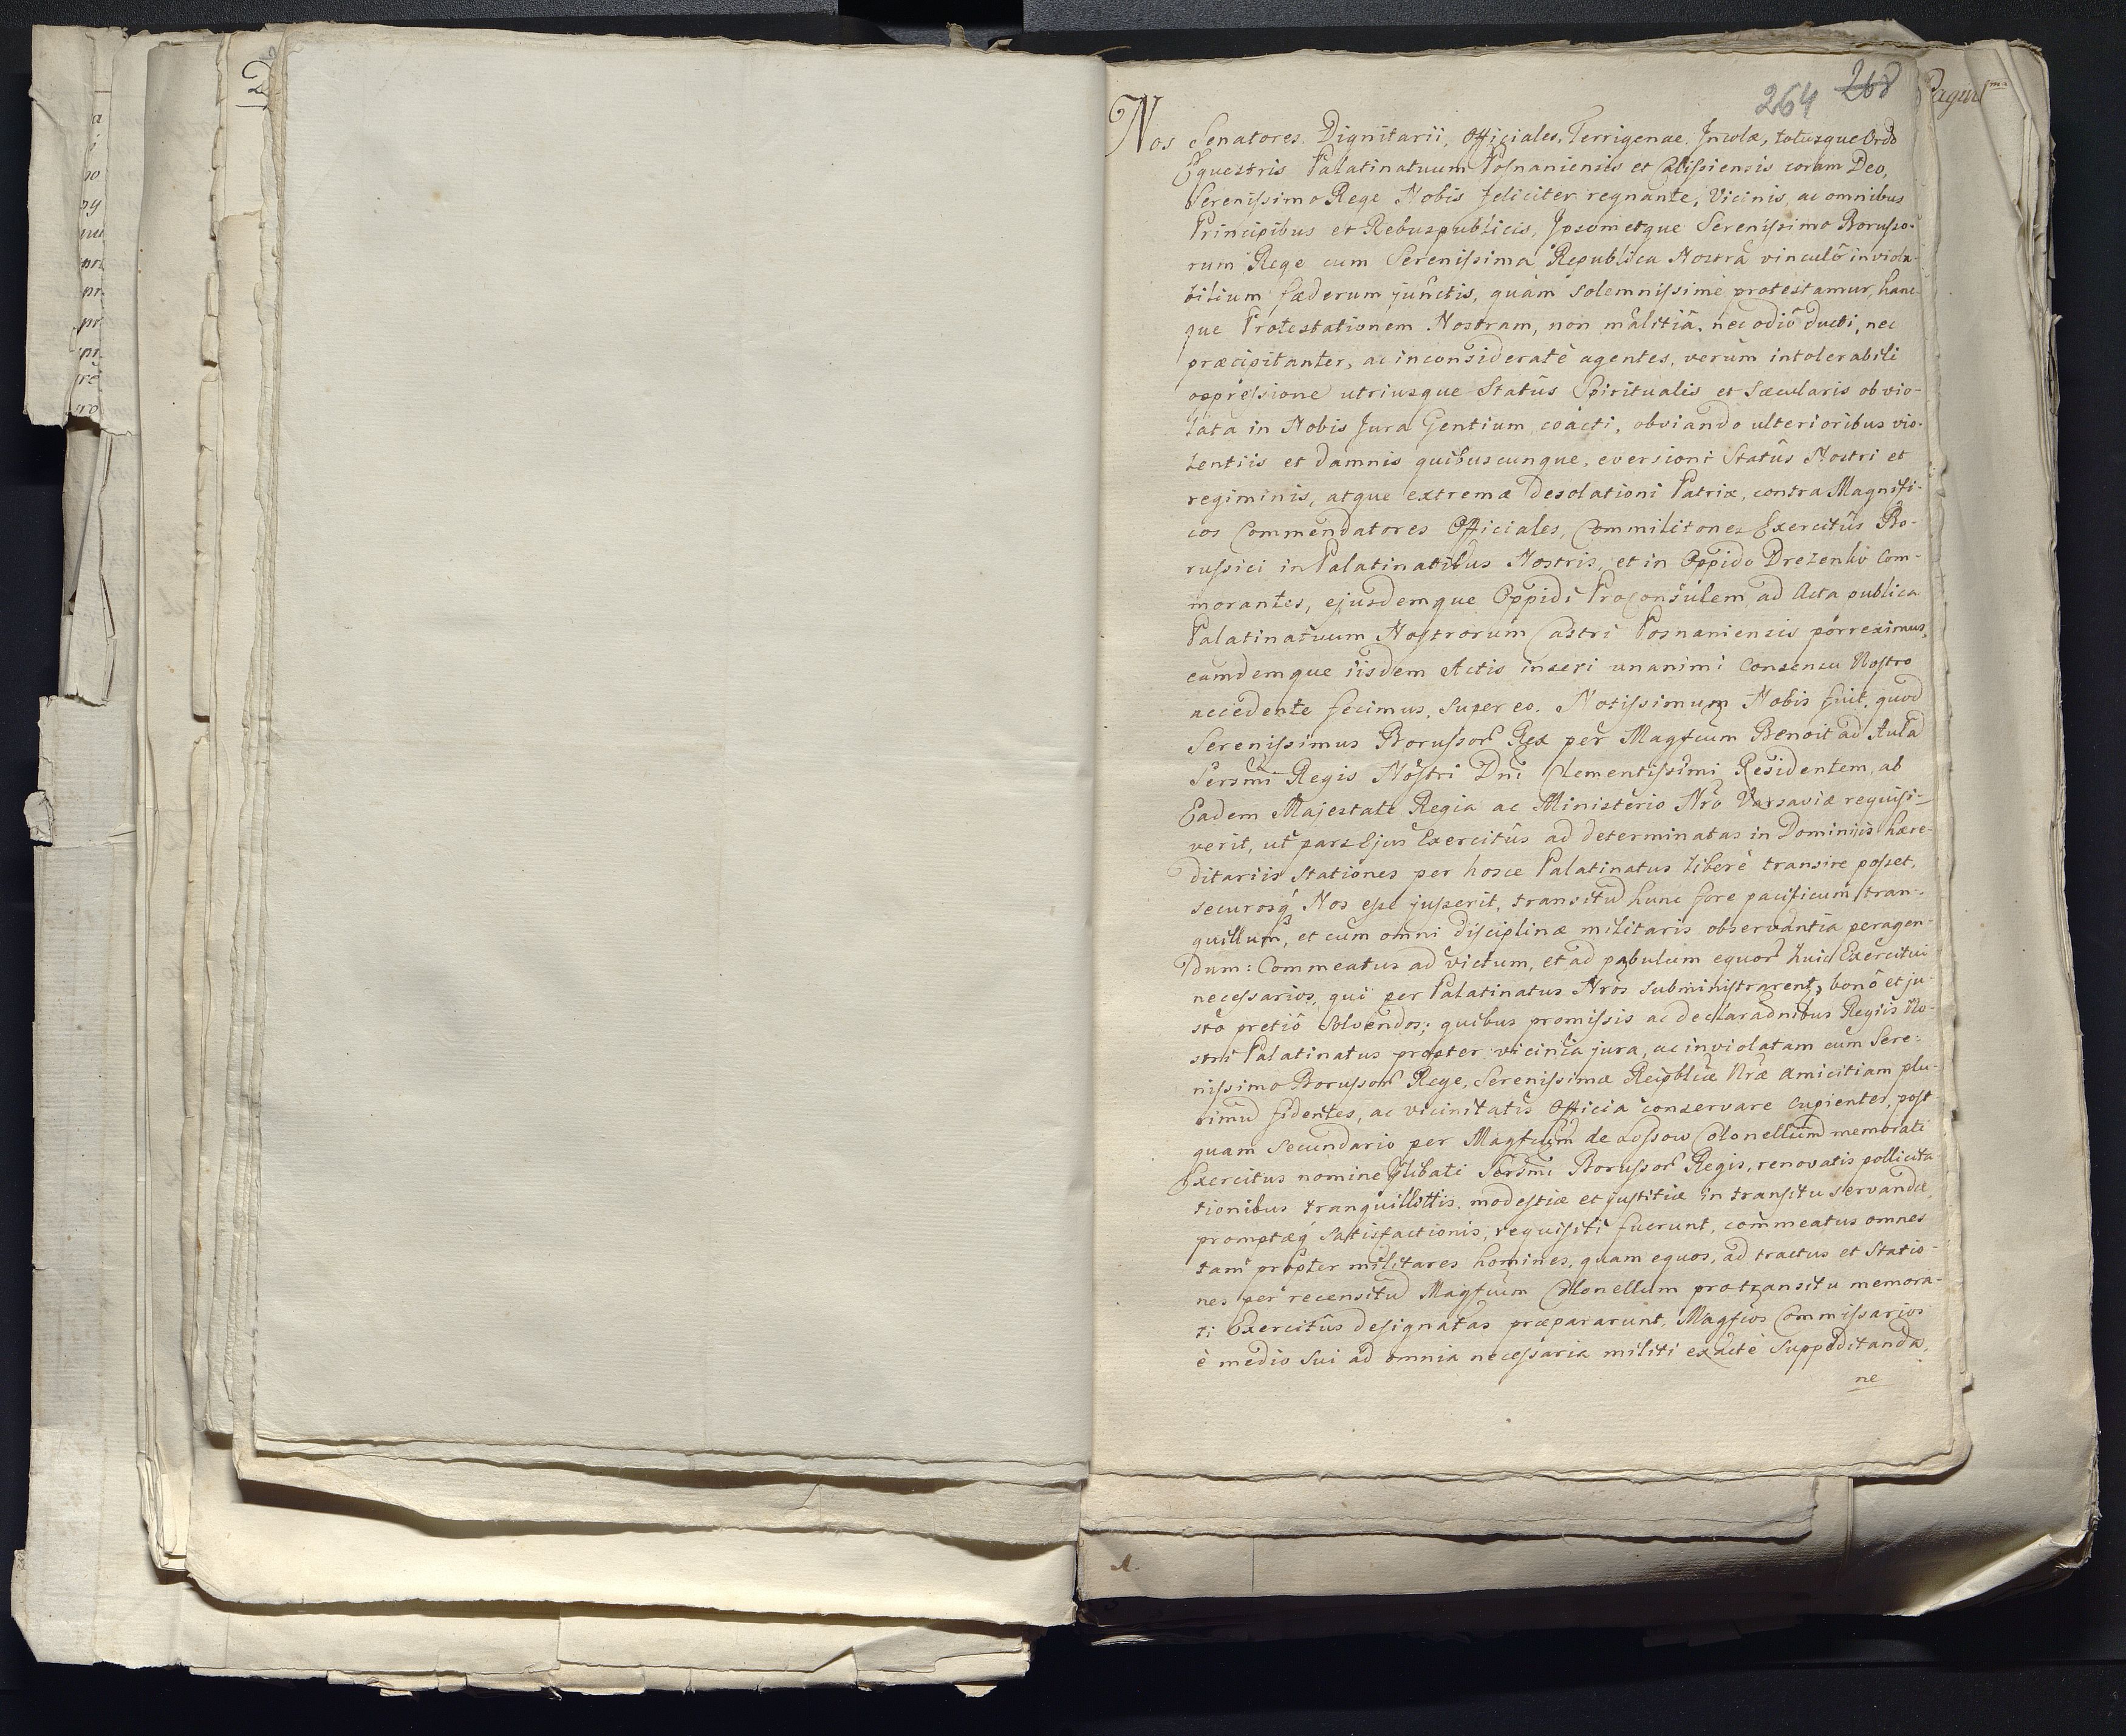 264 268
Nos Senatores, Dignitarii, Officiales, Terrigenae, Incolæ, totusque Ordo
Equestris Palatinatuum Posnaniensis et Calissiensis coram Deo,
Serenissimo Rege Nobis feliciter regnante, Vicinis, ac omnibus
Principibus et Rebuspublicis, Ipsometque Serenissimo Borusso-
rum Rege cum Serenissimâ Republica Nostrâ vinculô inviola-
bilium fæderum junctis, quàm solemnissimè protestamur, hanc-
que Protestationem Nostram, non malitiâ, nec odiô ducti, nec
præcipitanter, ac inconsideratè agentes, verùm intolerabili
oppressione utriusque Statûs Spiritualis et Sæcularis ob vio-
lata in Nobis Jura Gentium coacti, obviando ulterioribus vio-
lentiis et damnis quibuscunque, eversioni Statûs Nostri et
regiminis, atque extremæ desolationi Patriæ, contra Magnifi-
cos Commendatores Officiales, Commilitones Exercitûs Bo-
russici in Palatinatibus Nostris, et in Oppido Drezenko Com-
morantes, ejusdemque Oppidi Proconsulem ad Acta publica
Palatinatuum Nostrorum Castri Posnaniensis porreximus,
eamdemque iisdem Actis inseri unanimi Consensu Nostro
accedente fecimus, super eo. Notissimum Nobis fuit, quod
Serenissimus Borussor Rex per Magfcum Benoit ad Aulā
Sersmi Regis Nostri Dni Clementissimi Residentem, ab
Eadem Majestate Regia ac Ministerio Nro Varsaviæ requisi-
verit, ut pars Ejus Exercitûs ad determinatas in Dominiis hære-
ditariis Stationes per hosce Palatinatus liberè transire posset,
securosq́ Nos esse jusserit, transitū hunc fore pacificum, tran-
quillum, et cum omni disciplinæ militaris observantia peragen-
dum: Commeatus ad victum, et ad pabulum equor huic Exercitui
necessarios, qui per Palatinatus Nros subministrarent, bonô et ju-
stô pretiô solvendos; quibus promissis ac declaradnibus Regiis No-
stri Palatinatus propter vicinia jura, ac inviolatam cum Sere-
nissimo Borussor Rege, Serenissimæ Reipblicæ Nræ amicitiam plu-
rimū fidentes, ac vicinitatis Officia conservare cupientes, post
quam Secundario per Magfcum de Lossow Colonellum memorati
Exercitus nomine pilibati Sersmi Borussor Regis, renovatis pollicita-
tionibus tranquillittis, modestiæ et justitiæ in transitu servandæ,
promptæq́ satisfactionis, requisiti fuerunt, commeatus omnes
tam propter militares homines, quam equos, ad tractus et Statio-
nes per recensitū Magfcum Colonellum pro transitu memora-
ti Exercitûs designatas præpararunt, Magfcos Commissarios
è medio sui ad omnia necessaria militi exactè suppeditanda,
ne